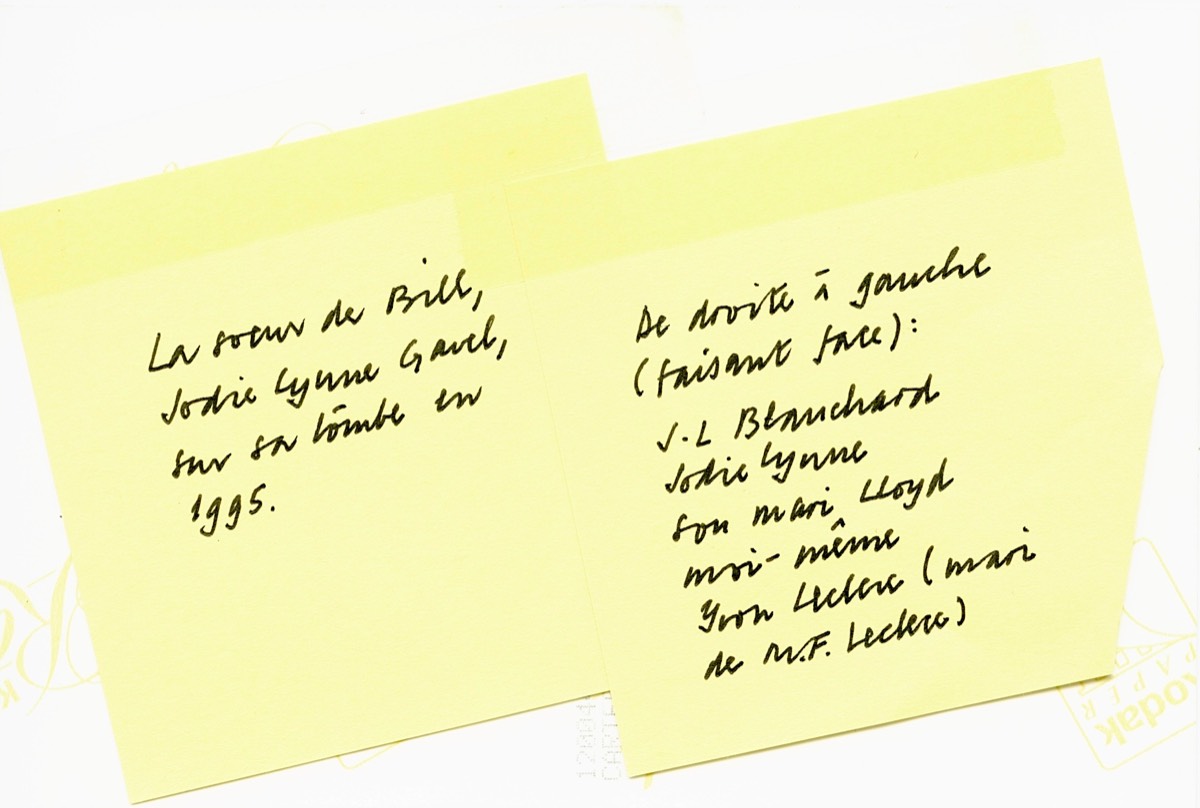 La soeur de Bill,
Jodie Lynne Gavel,
sur sa tombe en
1995.
De droite à gauche
(faisant face):
J.L Blanchard
Jodie Lynne
son mari Lloyd
moi-même
Yvon Leclerc (mari
de M.F. Leclerc)
Kodak
PAPER